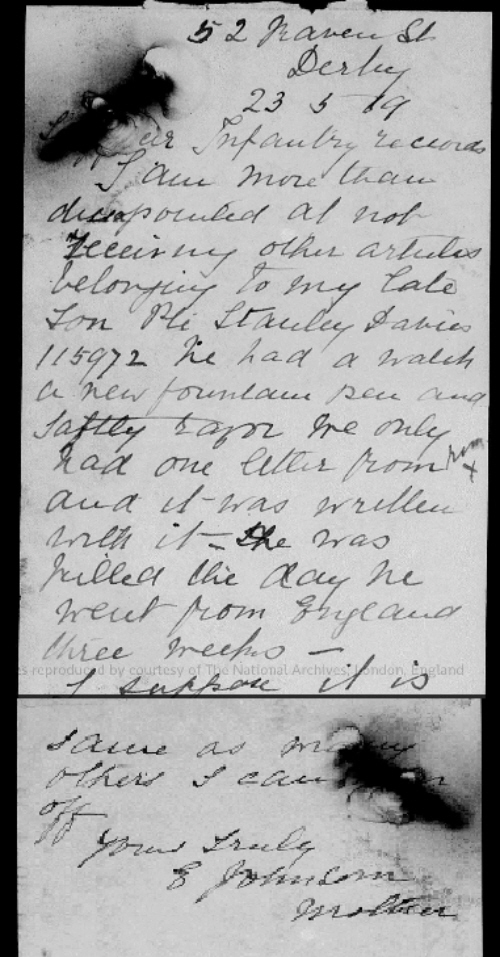 52 Raven St
Derby
23 5 19
Infantry records
I am more than
dissapointed at not
receiving other articles
belonging to my late
Son Pte Stanley Davies
115972 he had a watch
a new fountain pen and
saftty razor we only
had one letter from him
and it was written
with it - he was
killed the day he
went from England
three weeks -
s reproduced by courtesy of The National Archives, London, England
I suppose it is
same as many
others I
off
Yours Truly
E Johnson
Mother